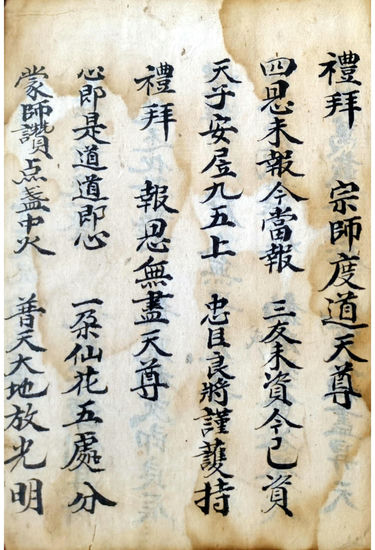 禮拜　宗師度道天尊
四恩未報今當報　三友未資今已資
天子安居九五上　忠臣良將謹護持
禮拜　報恩無盡天尊
心即是道道即心　一朶仙花五處分
蒙師讚点盞中火　普天大地放光明